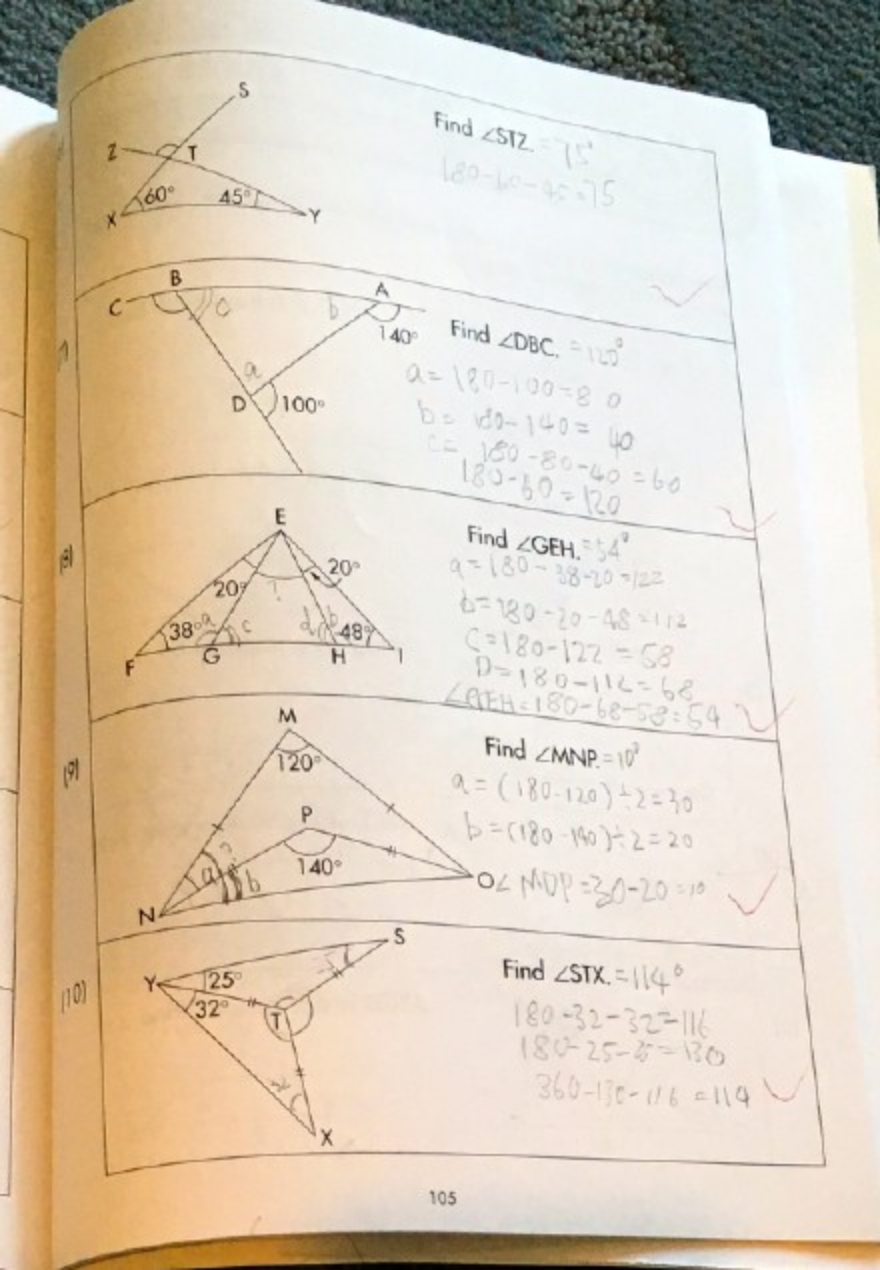 S
Z
T
60°
45°
X
Y
Find ∠STZ. = 75°
180-60-45=75
B
C
c
b
A
140°
a
D
100°
Find ∠DBC. = 120°
a = 180-100=80
b = 180-140= 40
c= 180-80-40=60
180-60=120
(8)
E
20°
20°
?
38°
a
c
d
b
48°
F
G
H
I
Find ∠GEH. = 54°
a=180-38-20=122
b=180-20-48=112
C=180-122=58
D=180-112=68
=180-68-58=54
(9)
M
120°
P
?
a
b
140°
N
O
Find ∠MNP. = 10°
a = (180-120)÷2=30
b =(180-140)÷2=20
=30-20=10
(10)
S
Y
25°
32°
T
X
Find ∠STX. = 114°
180-32-32=116
360-130-116=114
105